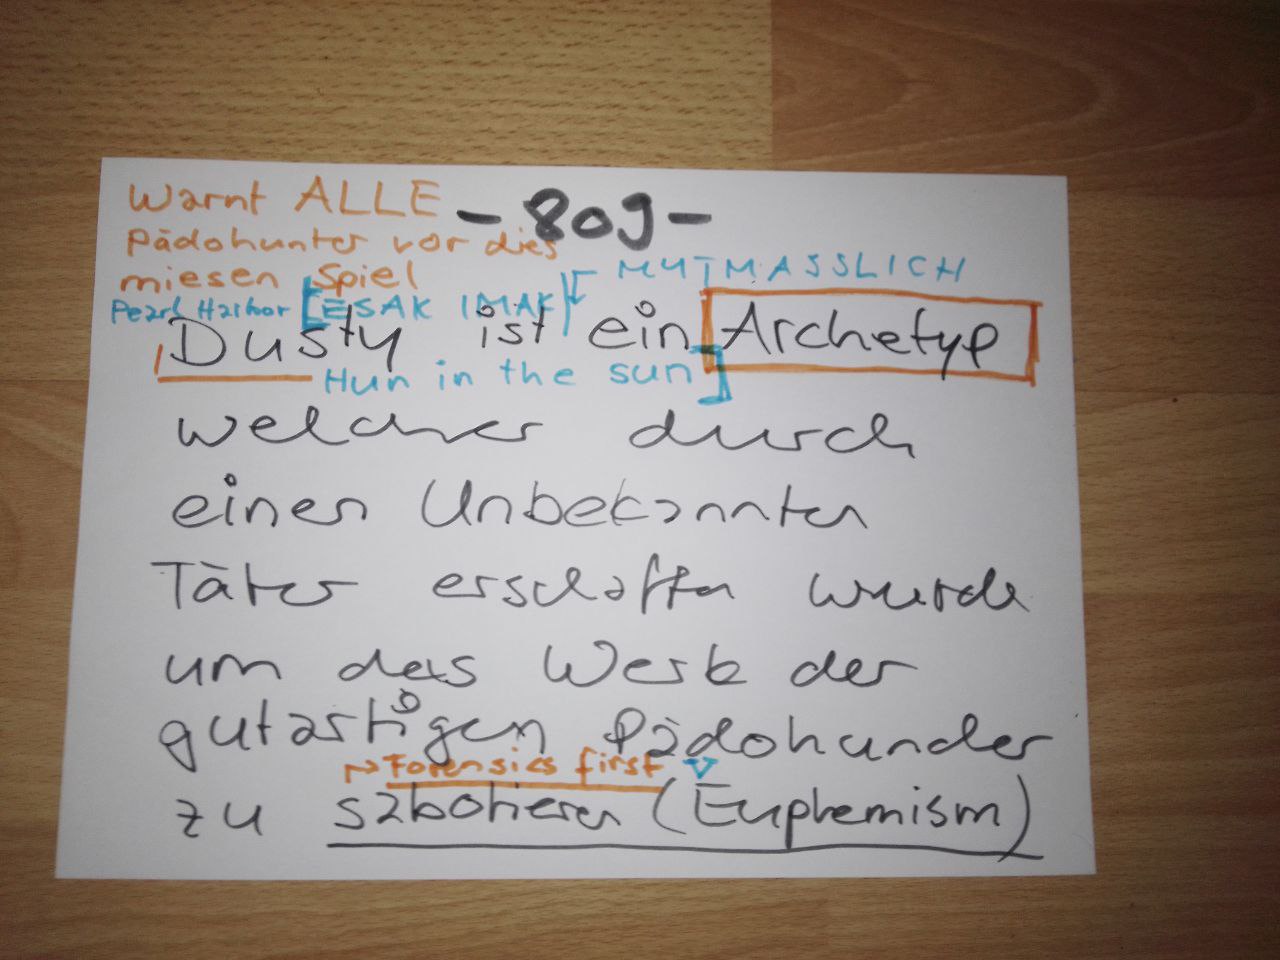 Warnt ALLE
- 809 -
Pädohunter vor dies
miesen Spiel
MUTMASSLICH
Pearl Harbor [ESAK IMAK]
Dusty ist ein Archetyp
Hun in the sun]
welcher durch
einen Unbekannten
Täter erschaffen wurde
um das Werk der
gutartigen Pädohunder
Forensics first
zu sabotieren (Euphemism)